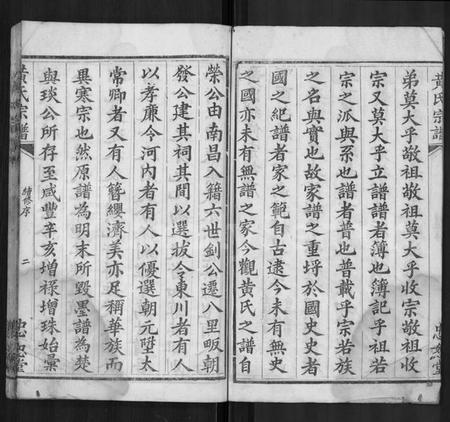 黃氏宗譜
忠恕堂
弟莫大乎敬祖敬祖莫大乎收宗敬祖收
宗又莫大乎立譜譜者簿也簿記乎祖若
宗之派與系也譜者普也普載乎宗若族
之名與實也故家譜之重埒於國史史者
國之紀譜者家之範自古逮今未有無史
之國亦未有無譜之家今觀黃氏之譜自
榮公由南昌入籍六世釗公遷八里畈朝
發公建其祠其間以選拔令東川者有人
以孝廉令河內者有人以優選朝元陞太
常卿者又有人簪纓濟美亦足稱華族而
異寒宗也然原譜為明末所毀墨譜為楚
與琰公所存至咸豐辛亥增祿增珠始彙
黃氏宗譜
續修序
二
忠恕堂